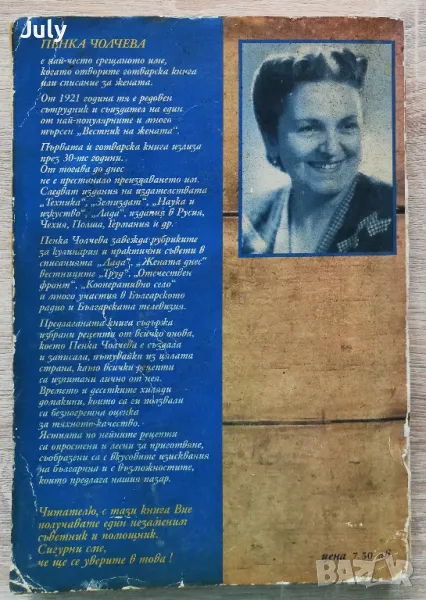 July
ПЕНКА ЧОЛЧЕВА
е най-често срещаното име,
когато отворите готварска книга
или списание за жената.
От 1921 година тя е редовен
сътрудник и създател на един
от най-популярните и много
търсен „Вестник на жената".
Първата ѝ готварска книга излиза
през 30-те години.
От тогава до днес
не е престанало преиздаването им.
Следват издания на издателствата
„Техника", „Земиздат", „Наука и
изкуство", „Лада", издания в Русия,
Чехия, Полша, Германия и др.
Пенка Чолчева завежда рубриките
за кулинария и практични съвети в
списанията „Лада", „Жената днес"
вестниците „Труд", „Отечествен
фронт", „Кооперативно село"
и много участия в Българското
радио и Българската телевизия.
Предлаганата книга съдържа
избрани рецепти от всичко онова,
което Пенка Чолчева е създала
и записала, пътувайки из цялата
страна, като всички рецепти
са изпитани лично от нея.
Времето и десетките хиляди
домакини, които са ги ползвали
са безпогрешна оценка
за тяхното качество.
Ястията по нейните рецепти
са опростени и лесни за приготвяне,
съобразени са с вкусовите изисквания
на българина и с възможностите,
които предлага нашия пазар.
Читателю, с тази книга Вие
получавате един незаменим
съветник и помощник.
Сигурни сме,
че ще се уверите в това !
цена 7.50 лв
BAZAR